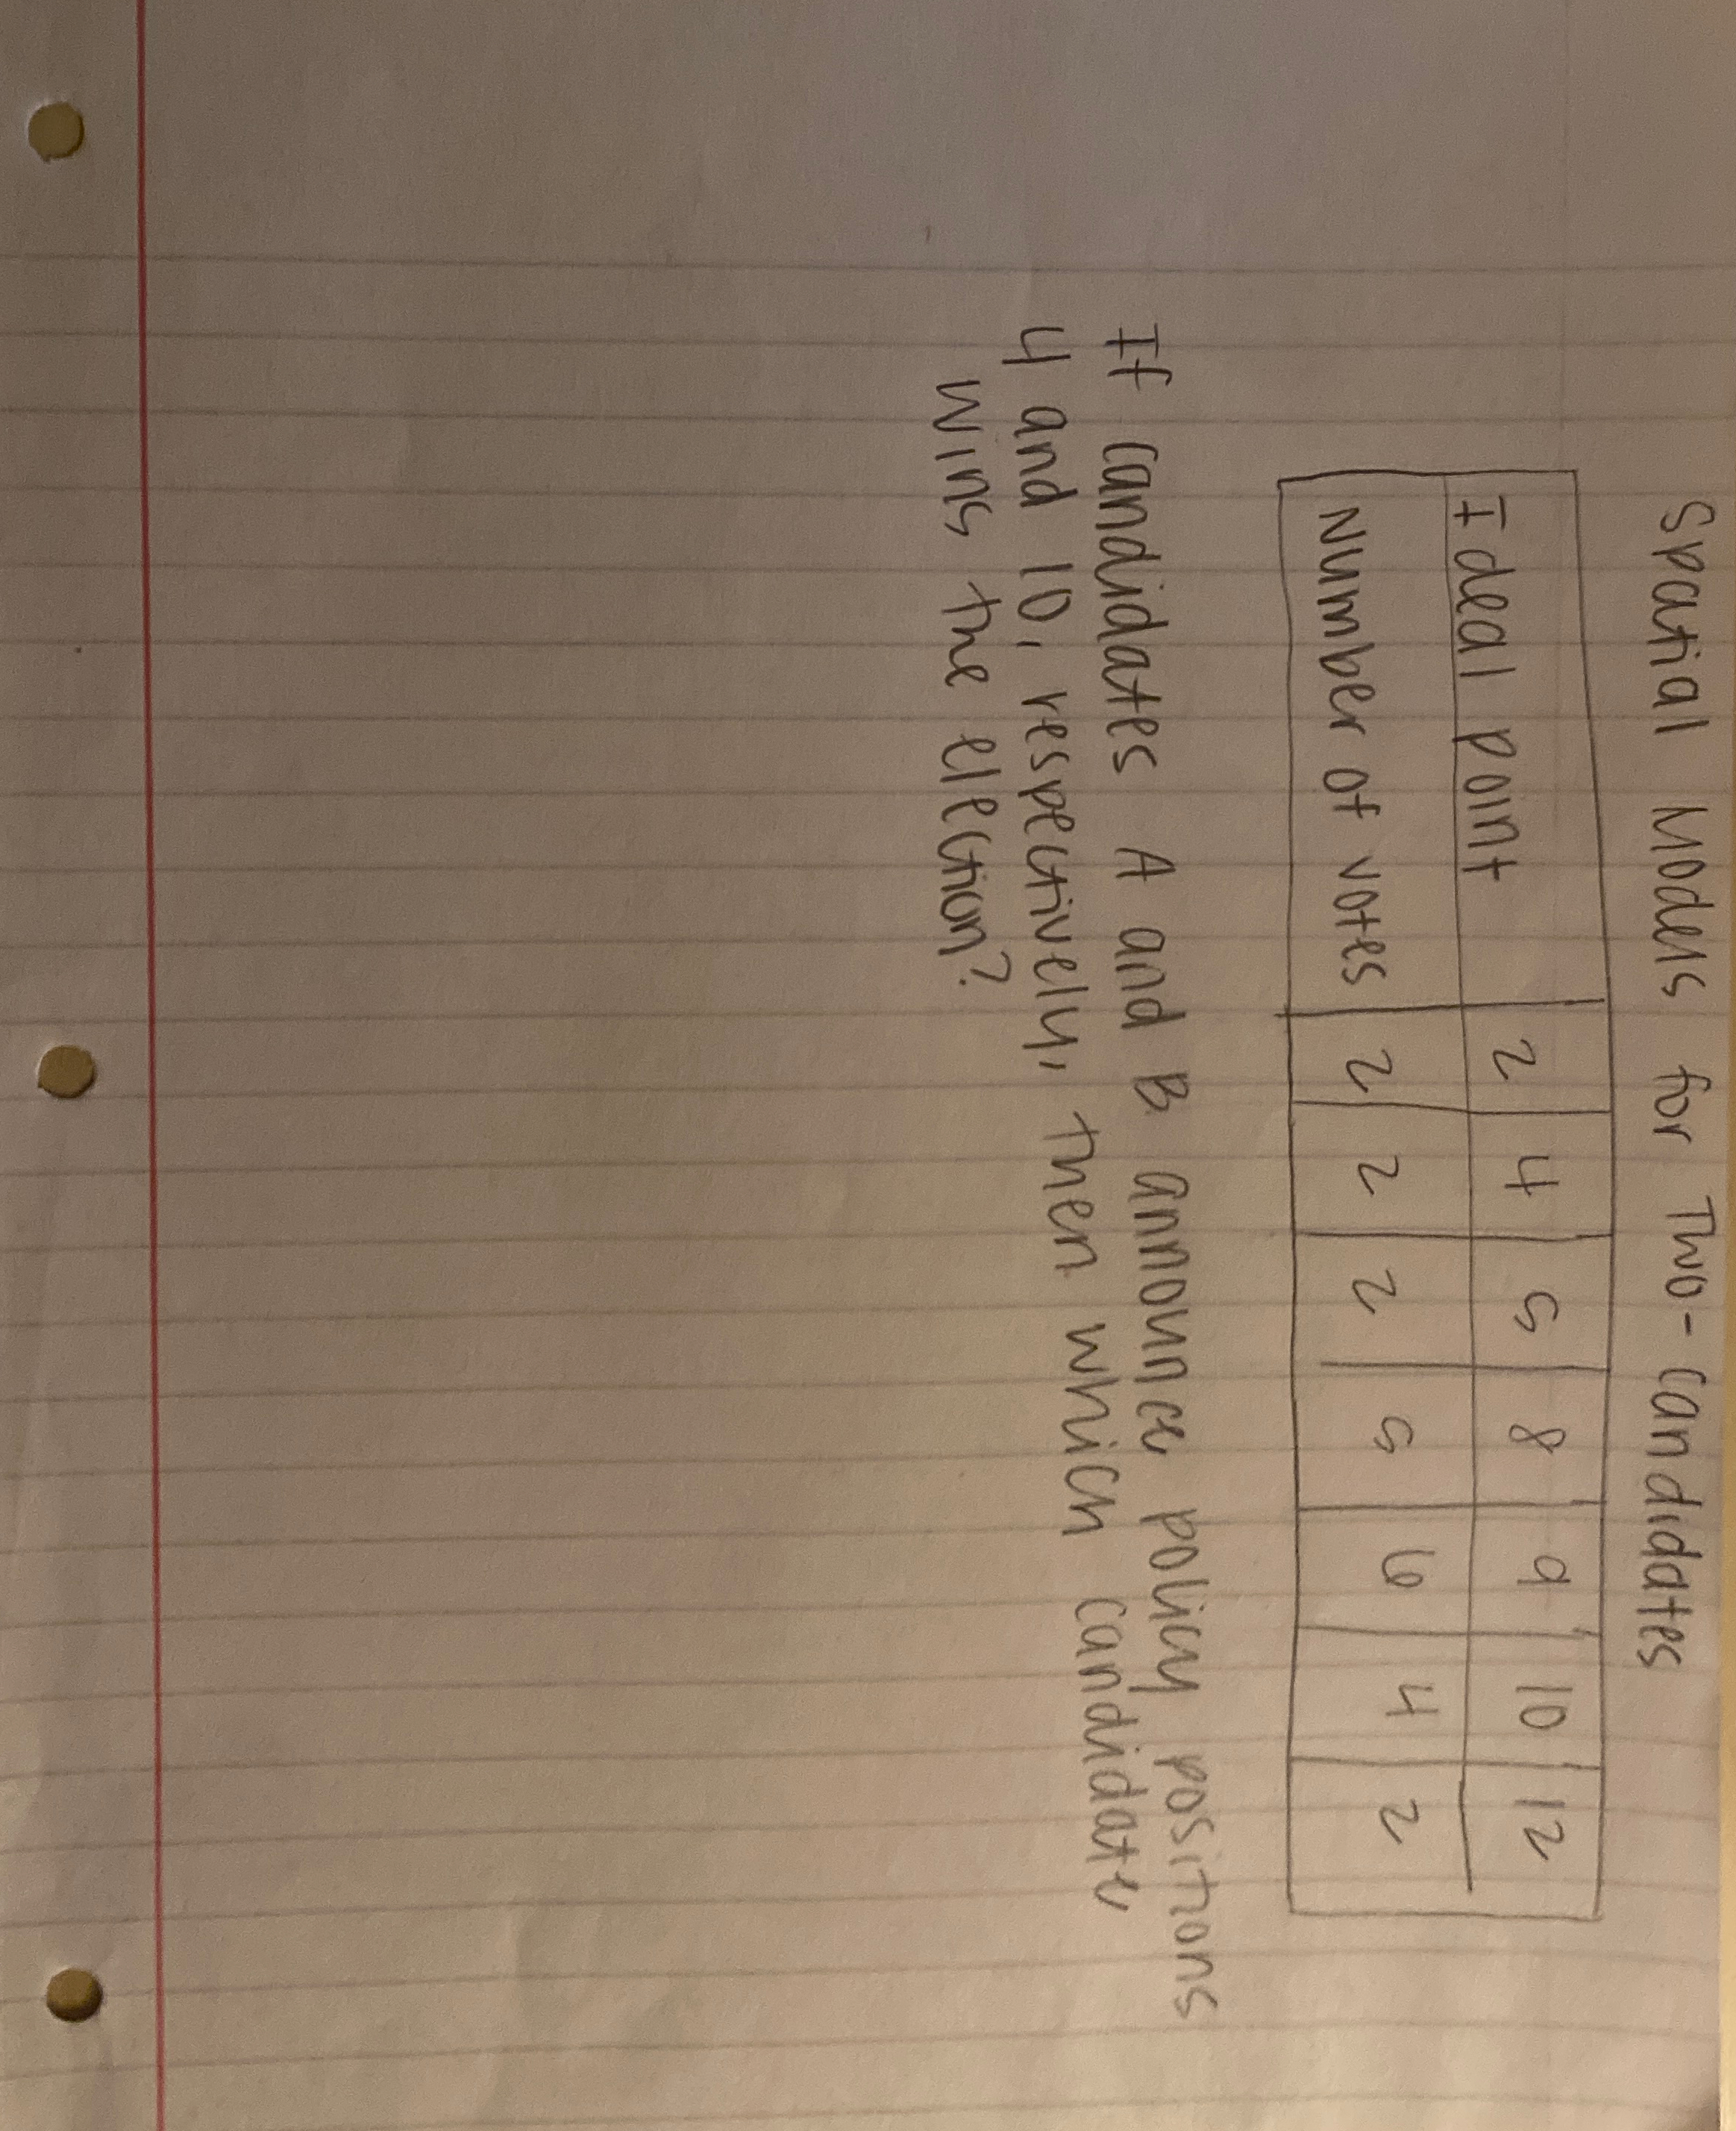 Spatial Models for Two-Candidates
Ideal point 2 4 5 8 9 10 12
Number of votes 2 2 2 5 6 4 2
If candidates A and B announce policy positions
4 and 10, respectively, then which candidate
wins the election?